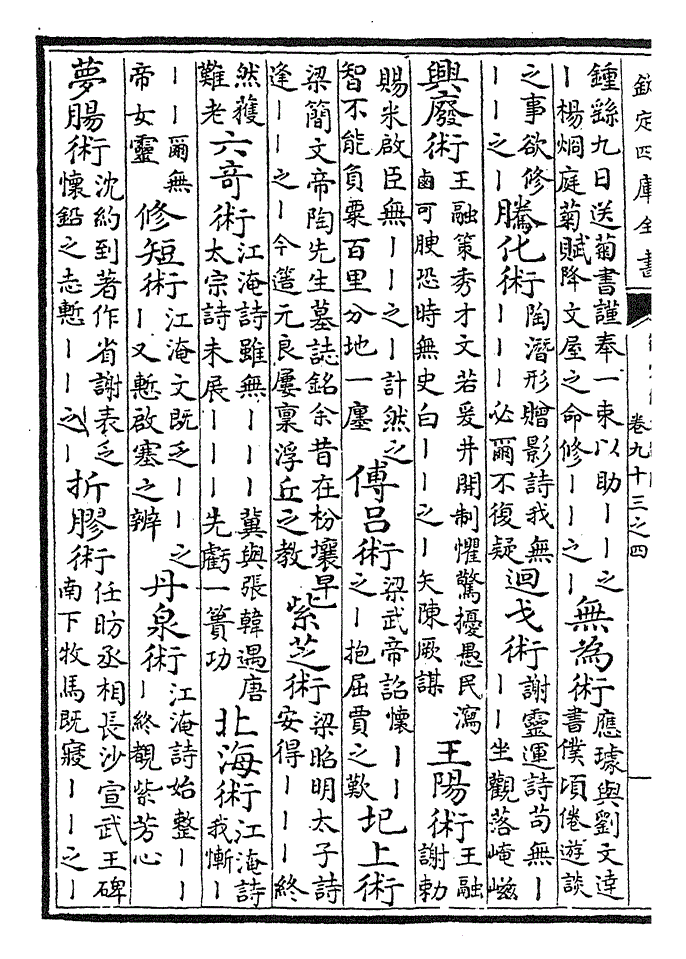 欽定四庫全書 卷九十三之四
鍾繇九日送菊書謹奉一束以助丨丨之丨楊烱庭菊賦降文屋之命修丨丨之丨無為術應璩與劉文達書僕頃倦遊談
之事欲修丨丨之丨騰化術陶潛形贈影詩我無丨丨丨必爾不復疑迴戈術謝靈運詩苟無丨丨丨坐觀落崦嵫
興廢術王融策秀才文若爰井開制懼驚擾愚民瀉鹵可腴恐時無史白丨丨之丨矢陳厥謀王陽術王融謝勅
賜米啟臣無丨丨之丨計然之智不能負粟百里分地一廛傅呂術梁武帝詔懷丨丨之丨抱屈賈之歎圯上術
梁簡文帝陶先生墓誌銘余昔在枌壤早逢丨丨之丨今簉元良屢稟浮丘之教紫芝術梁昭明太子詩安得丨丨丨終
然獲難老六奇術江淹詩雖無丨丨丨冀與張韓遇唐太宗詩未展丨丨丨先虧一簣功北海術江淹詩我慚丨
丨丨爾無帝女靈修短術江淹文既乏丨丨之丨又慙啟塞之辨丹泉術江淹詩始整丨丨丨終觀紫芳心
夢腸術沈約到著作省謝表乏懷鉛之志慙丨丨之丨折膠術任昉丞相長沙宣武王碑南下牧馬既寢丨丨之丨